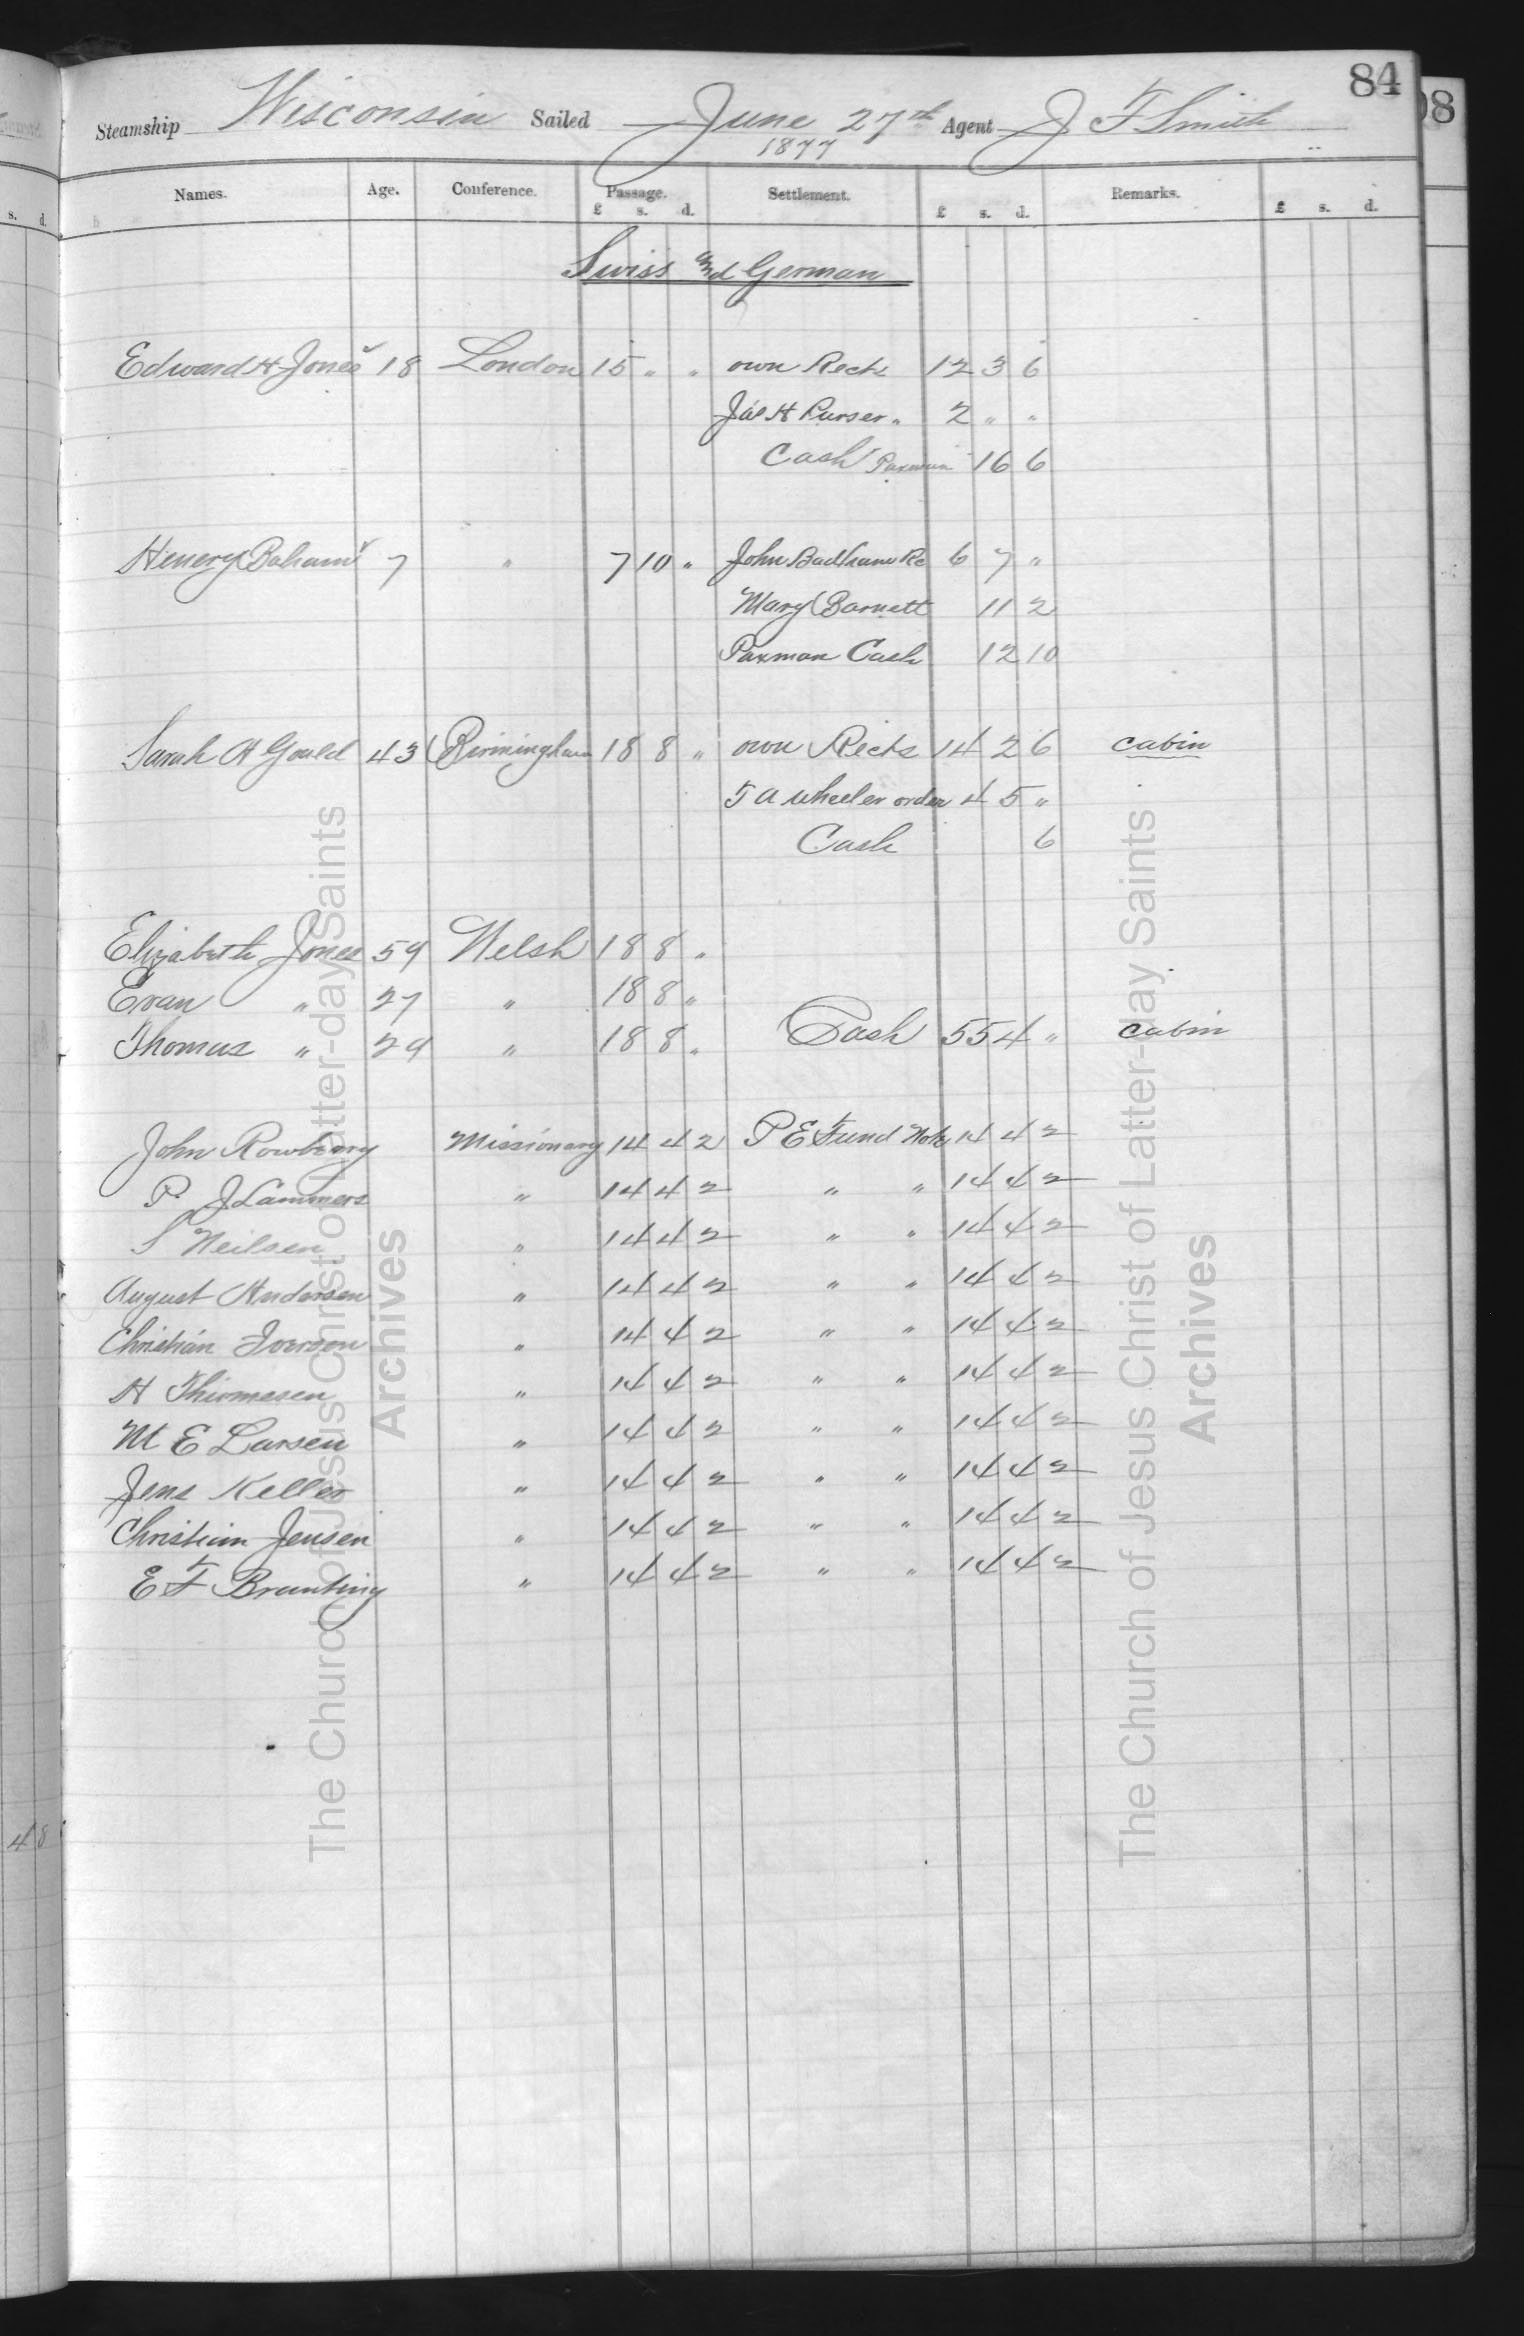 84
Steamship Wisconsin Sailed June 27th Agent J F Smith
1877
Names. Age. Conference. Passage. Settlement. Remarks.
£ s. d. £ s. d. £ s. d.
Swiss and German
Edward H Jones 18 London 15 " " own Rects 12 3 6
Jas H Purser " 2 " "
Cash Paxman 16 6
Henery Baham 7 " 7 10 " John Badham Re 6 7 "
Mary Barnett 11 2
Paxman Cash 12 10
Sarah A Gould 43 Birmingham 18 8 " own Rects 14 2 6 cabin
T A Wheeler order 4 5 "
Cash 6
Elizabeth Jones 59 Welsh 18 8 "
Evan " 27 " 18 8 "
Thomas " 29 " 18 8 " Cash 55 4 " cabin
John Rowberry Missionary 14 4 2 P E Fund Note 14 4 2
P. J Lammers " 14 4 2 " " 14 4 2
S Neilsen " 14 4 2 " " 14 4 2
August Andersen " 14 4 2 " " 14 4 2
Christian Iverson " 14 4 2 " " 14 4 2
H Thomasen " 14 4 2 " " 14 4 2
M E Larsen " 14 4 2 " " 14 4 2
Jens Keller " 14 4 2 " " 14 4 2
Christian Jensen " 14 4 2 " " 14 4 2
E F Branting " 14 4 2 " " 14 4 2
The Church of Jesus Christ of Latter-day Saints
Archives
The Church of Jesus Christ of Latter-day Saints
Archives
98
s. d.
4 8